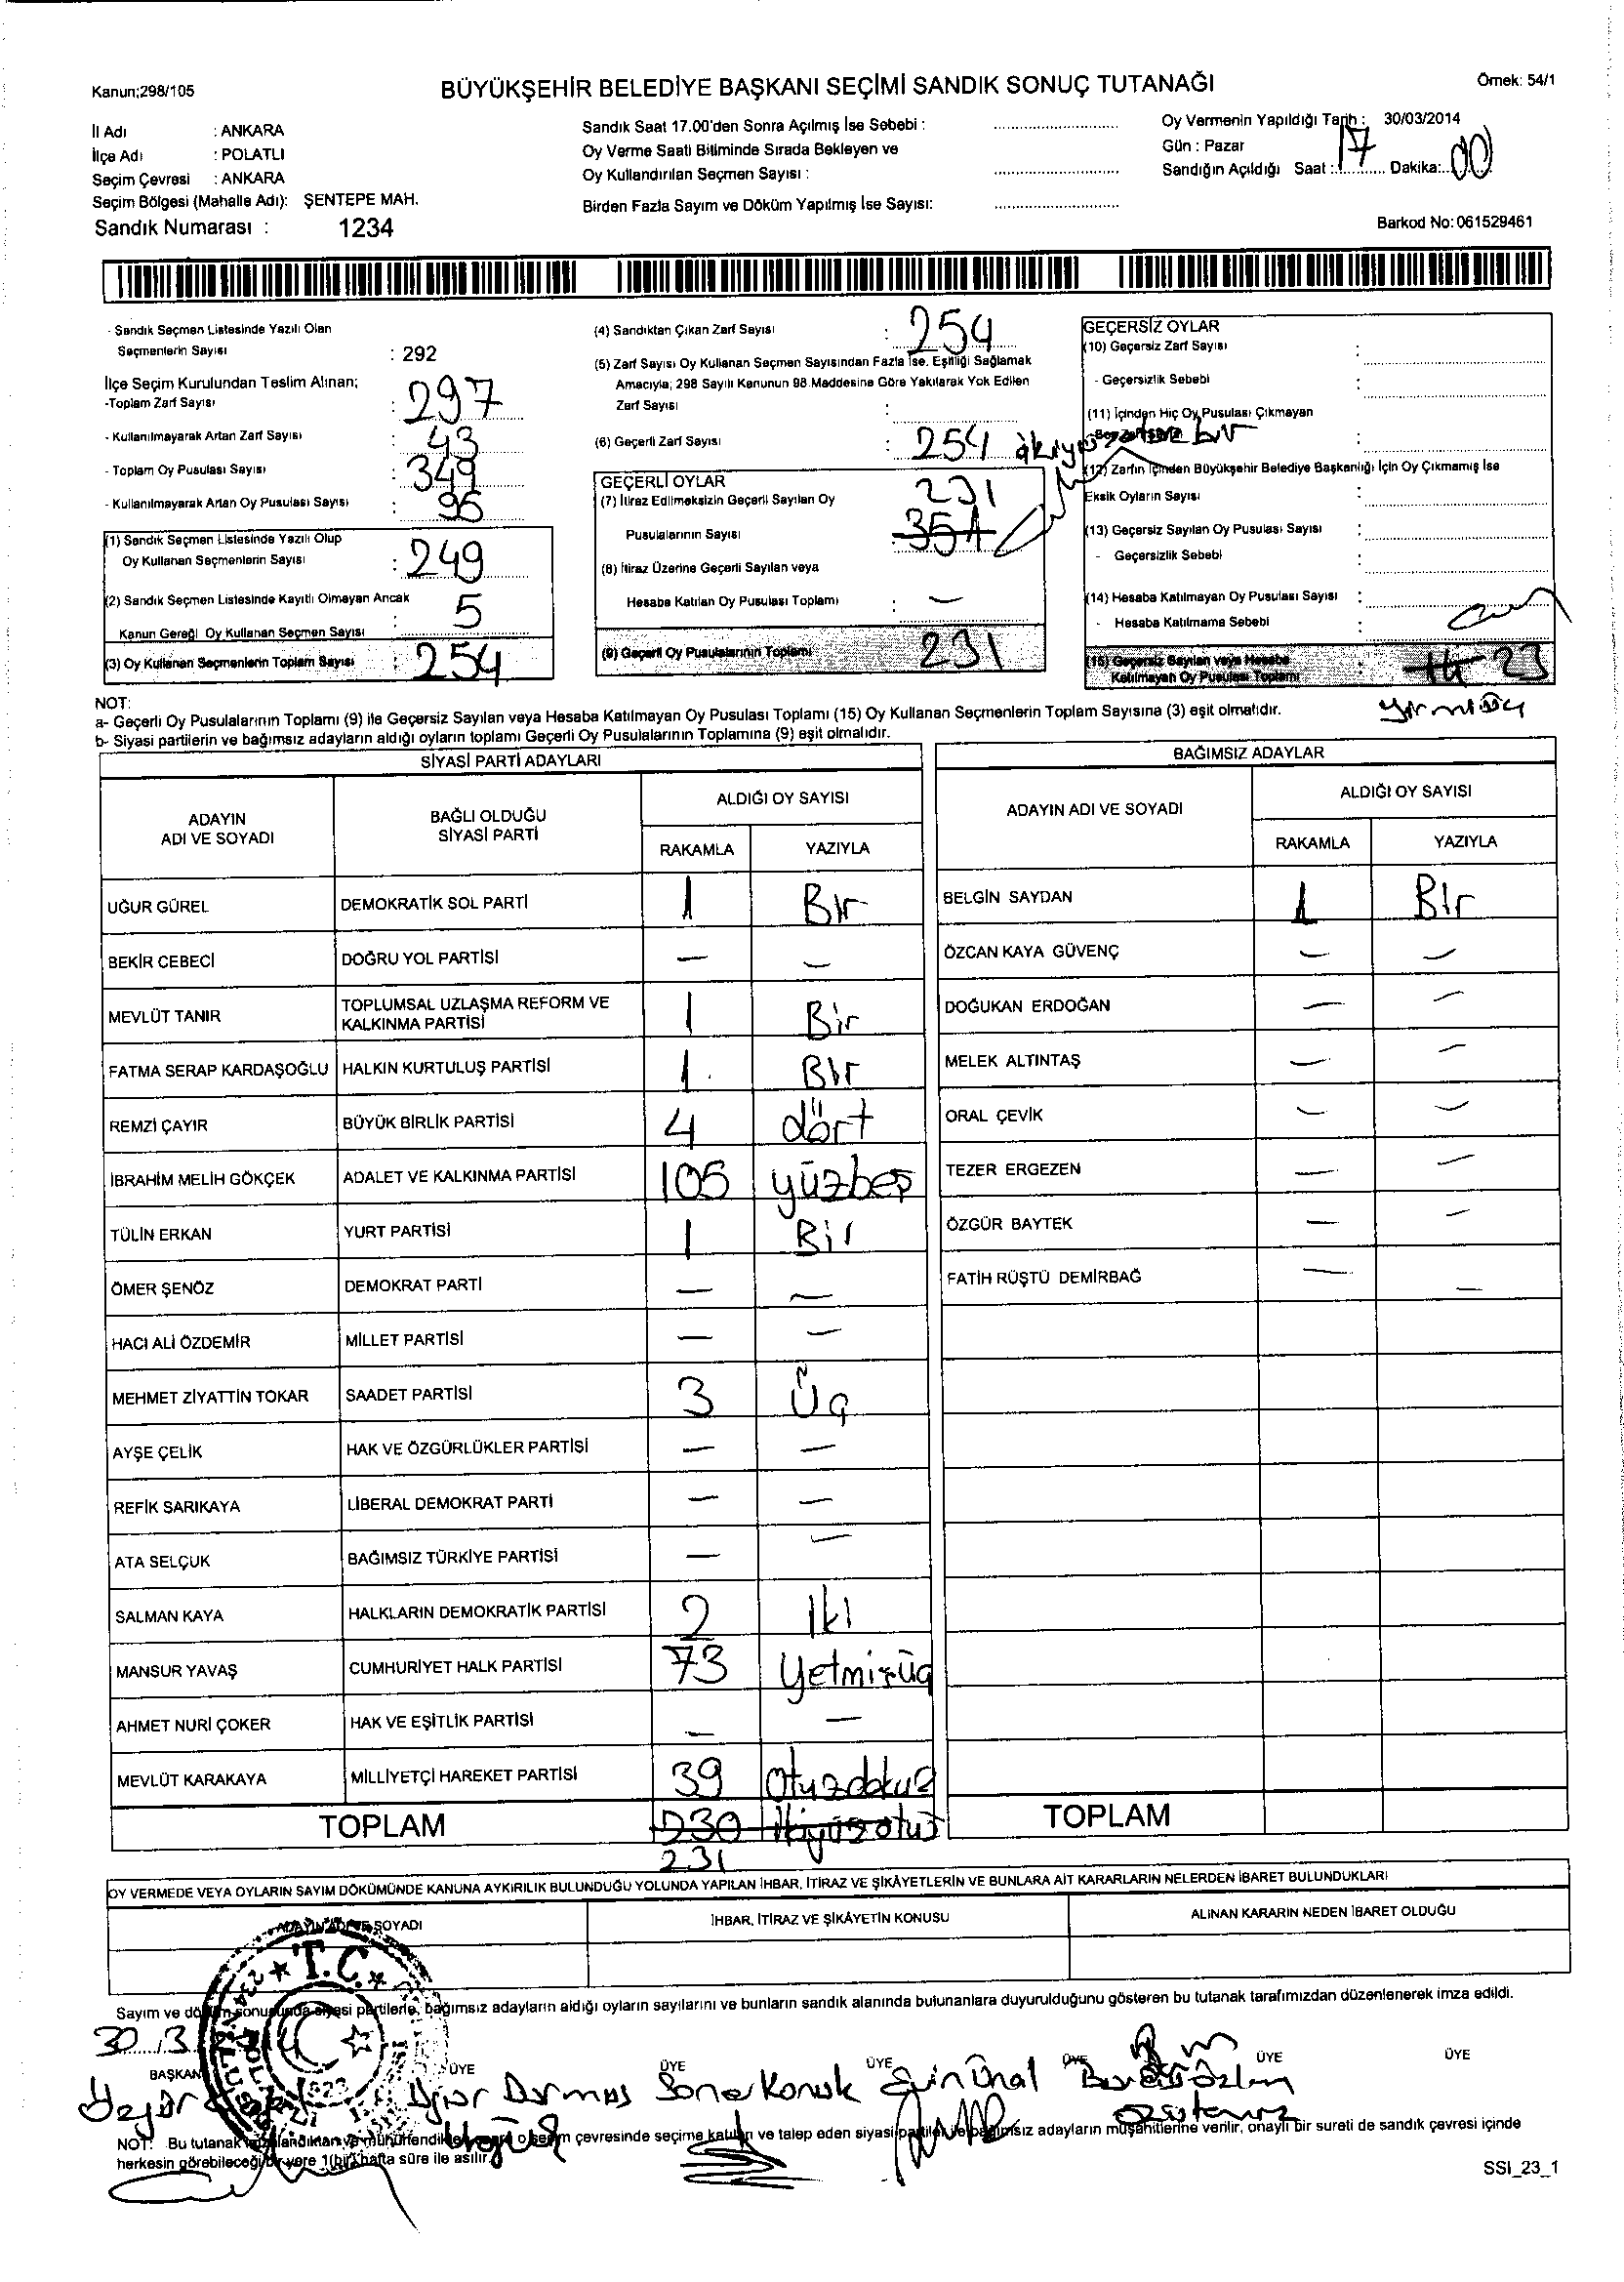 Kanun;298/105
BÜYÜKŞEHİR BELEDİYE BAŞKANI SEÇİMİ SANDIK SONUÇ TUTANAĞI
Örnek: 54/1
İl Adı : ANKARA
İlçe Adı : POLATLI
Seçim Çevresi : ANKARA
Seçim Bölgesi (Mahalle Adı): ŞENTEPE MAH.
Sandık Numarası : 1234
Sandık Saat 17.00'den Sonra Açılmış İse Sebebi :
Oy Verme Saati Bitiminde Sırada Bekleyen ve
Oy Kullandırılan Seçmen Sayısı :
Birden Fazla Sayım ve Döküm Yapılmış İse Sayısı:
Oy Vermenin Yapıldığı Tarih : 30/03/2014
Gün : Pazar
Sandığın Açıldığı Saat : 17 Dakika: 00
Barkod No: 061529461
- Sandık Seçmen Listesinde Yazılı Olan
Seçmenlerin Sayısı : 292
İlçe Seçim Kurulundan Teslim Alınan;
-Toplam Zarf Sayısı : 297
- Kullanılmayarak Artan Zarf Sayısı : 43
- Toplam Oy Pusulası Sayısı : 349
- Kullanılmayarak Artan Oy Pusulası Sayısı : 95
(1) Sandık Seçmen Listesinde Yazılı Olup
Oy Kullanan Seçmenlerin Sayısı : 249
(2) Sandık Seçmen Listesinde Kayıtlı Olmayan Ancak
Kanun Gereği Oy Kullanan Seçmen Sayısı : 5
(3) Oy Kullanan Seçmenlerin Toplam Sayısı : 254
(4) Sandıktan Çıkan Zarf Sayısı : 254
(5) Zarf Sayısı Oy Kullanan Seçmen Sayısından Fazla İse, Eşitliği Sağlamak
Amacıyla; 298 Sayılı Kanunun 98.Maddesine Göre Yakılarak Yok Edilen
Zarf Sayısı :
(6) Geçerli Zarf Sayısı : 254
GEÇERLİ OYLAR
(7) İtiraz Edilmeksizin Geçerli Sayılan Oy 231
Pusulalarının Sayısı : 354
(8) İtiraz Üzerine Geçerli Sayılan veya
Hesaba Katılan Oy Pusulası Toplamı : —
(9) Geçerli Oy Pusulalarının Toplamı 231
GEÇERSİZ OYLAR
(10) Geçersiz Zarf Sayısı :
- Geçersizlik Sebebi :
(11) İçinden Hiç Oy Pusulası Çıkmayan
(12) Zarfın İçinden Büyükşehir Belediye Başkanlığı İçin Oy Çıkmamış İse
Eksik Oyların Sayısı :
(13) Geçersiz Sayılan Oy Pusulası Sayısı :
- Geçersizlik Sebebi :
(14) Hesaba Katılmayan Oy Pusulası Sayısı :
- Hesaba Katılmama Sebebi :
(15) Geçersiz Sayılan veya Hesaba
Katılmayan Oy Pusulası Toplamı : 23
NOT:
a- Geçerli Oy Pusulalarının Toplamı (9) ile Geçersiz Sayılan veya Hesaba Katılmayan Oy Pusulası Toplamı (15) Oy Kullanan Seçmenlerin Toplam Sayısına (3) eşit olmalıdır.
b- Siyasi partilerin ve bağımsız adayların aldığı oyların toplamı Geçerli Oy Pusulalarının Toplamına (9) eşit olmalıdır.
SİYASİ PARTİ ADAYLARI
ADAYIN ADI VE SOYADI
BAĞLI OLDUĞU SİYASİ PARTİ
ALDIĞI OY SAYISI
RAKAMLA YAZIYLA
UĞUR GÜREL DEMOKRATİK SOL PARTİ 1 Bir
BEKİR CEBECİ DOĞRU YOL PARTİSİ — —
MEVLÜT TANIR TOPLUMSAL UZLAŞMA REFORM VE KALKINMA PARTİSİ 1 Bir
FATMA SERAP KARDAŞOĞLU HALKIN KURTULUŞ PARTİSİ 1 Bir
REMZİ ÇAYIR BÜYÜK BİRLİK PARTİSİ 4 dört
İBRAHİM MELİH GÖKÇEK ADALET VE KALKINMA PARTİSİ 105 yüzbeş
TÜLİN ERKAN YURT PARTİSİ 1 Bir
ÖMER ŞENÖZ DEMOKRAT PARTİ — —
HACI ALİ ÖZDEMİR MİLLET PARTİSİ — —
MEHMET ZİYATTİN TOKAR SAADET PARTİSİ 3 Üç
AYŞE ÇELİK HAK VE ÖZGÜRLÜKLER PARTİSİ — —
REFİK SARIKAYA LİBERAL DEMOKRAT PARTİ — —
ATA SELÇUK BAĞIMSIZ TÜRKİYE PARTİSİ — —
SALMAN KAYA HALKLARIN DEMOKRATİK PARTİSİ 2 İki
MANSUR YAVAŞ CUMHURİYET HALK PARTİSİ 73 Yetmişüç
AHMET NURİ ÇOKER HAK VE EŞİTLİK PARTİSİ — —
MEVLÜT KARAKAYA MİLLİYETÇİ HAREKET PARTİSİ 39 Otuzdokuz
TOPLAM 230 ikiyüzotuz
231
BAĞIMSIZ ADAYLAR
ADAYIN ADI VE SOYADI
ALDIĞI OY SAYISI
RAKAMLA YAZIYLA
BELGİN SAYDAN 1 Bir
ÖZCAN KAYA GÜVENÇ — —
DOĞUKAN ERDOĞAN — —
MELEK ALTINTAŞ — —
ORAL ÇEVİK — —
TEZER ERGEZEN — —
ÖZGÜR BAYTEK — —
FATİH RÜŞTÜ DEMİRBAĞ — —
TOPLAM
OY VERMEDE VEYA OYLARIN SAYIM DÖKÜMÜNDE KANUNA AYKIRILIK BULUNDUĞU YOLUNDA YAPILAN İHBAR, İTİRAZ VE ŞİKÂYETLERİN VE BUNLARA AİT KARARLARIN NELERDEN İBARET BULUNDUKLARI
ADAYIN ADI VE SOYADI
İHBAR, İTİRAZ VE ŞİKÂYETİN KONUSU
ALINAN KARARIN NEDEN İBARET OLDUĞU
T.C.
Sayım ve döküm sonusunda siyasi partilerle, bağımsız adayların aldığı oyların sayılarını ve bunların sandık alanında bulunanlara duyurulduğunu gösteren bu tutanak tarafımızdan düzenlenerek imza edildi.
30/3
BAŞKAN ÜYE ÜYE ÜYE ÜYE ÜYE ÜYE
Uğur Durmuş Soner Konuk Ünal
NOT: Bu tutanak çevresinde seçime katılan ve talep eden siyasi partiler ile bağımsız adayların müşahitlerine verilir, onaylı bir sureti de sandık çevresi içinde
herkesin görebileceği bir yere 1(bir) hafta süre ile asılır.
SSI_23_1